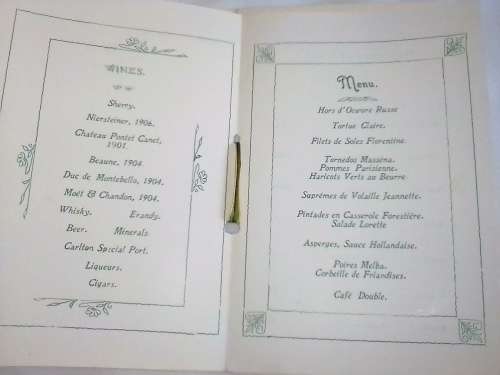 WINES.
Sherry.
Niersteiner, 1906.
Chateau Pontet Canet,
1901.
Beaune, 1904
Duc de Montebello, 1904.
Moët & Chandon, 1904.
Whisky. Brandy.
Beer. Minerals.
Carlton Special Port.
Liqueurs.
Cigars.
Menu.
Hors d'Oeuvre Russe
Tortue Claire.
Filets de Soles Florentine.
Tornedos Masséna.
Pommes Parisienne.
Haricots Verts au Beurre.
Suprêmes de Volaille Jeannette.
Pintades en Casserole Forestière.
Salade Lorette
Asperges, Sauce Hollandaise.
Poires Melba.
Corbeille de Friandises.
Café Double.